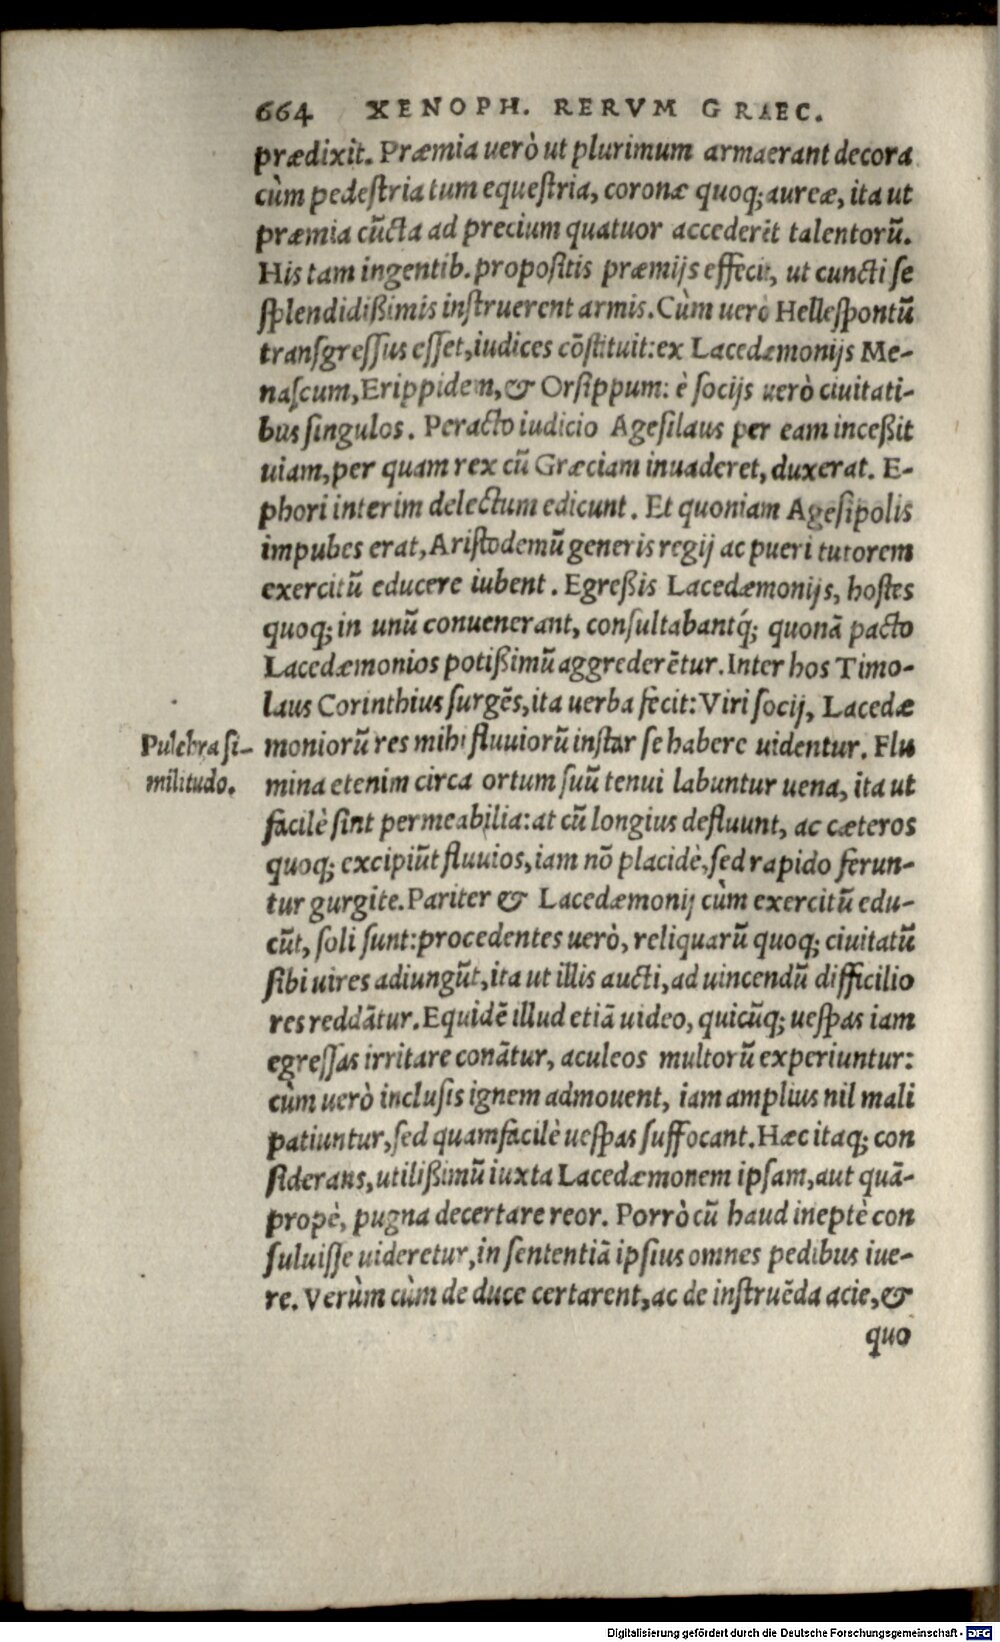 664 XENOPH. RERVM GRAEC.
prædixit. Præmia uerò ut plurimum arma erant decora
cùm pedeſtria tum equeſtria, coronæ quoq; aureæ, ita ut
præmia cũcta ad precium quatuor accederẽt talentorũ.
His tam ingentib. propoſitis præmijs effecit, ut cuncti ſe
ſplendidißimis inſtruerent armis. Cùm uerò Helleſpontũ
tranſgreſſus eſſet, iudices cõſtituit: ex Lacedæmonijs Me-
naſcum, Erippidem, & Orſippum: è ſocijs uerò ciuitati-
bus ſingulos. Peracto iudicio Ageſilaus per eam inceßit
uiam, per quam rex cũ Græciam inuaderet, duxerat. E-
phori interim delectum edicunt. Et quoniam Ageſipolis
impubes erat, Ariſtodemũ generis regij ac pueri tutorem
exercitũ educere iubent. Egreßis Lacedæmonijs, hoſtes
quoq; in unũ conuenerant, conſultabantq́; quonã pacto
Lacedæmonios potißimũ aggrederẽtur. Inter hos Timo-
laus Corinthius ſurgẽs, ita uerba fecit: Viri ſocij, Lacedæ
Pulchra ſi- moniorũ res mihi fluuiorũ inſtar ſe habere uidentur. Flu
militudo. mina etenim circa ortum ſuũ tenui labuntur uena, ita ut
facilè ſint permeabilia: at cũ longius defluunt, ac cæteros
quoq; excipiũt fluuios, iam nõ placidè, ſed rapido ferun-
tur gurgite. Pariter & Lacedæmonij cùm exercitũ edu-
cũt, ſoli ſunt: procedentes uerò, reliquarũ quoq; ciuitatũ
ſibi uires adiungũt, ita ut illis aucti, ad uincendũ difficilio
res reddãtur. Equidẽ illud etiã uideo, quicũq; ueſpas iam
egreſſas irritare conãtur, aculeos multorũ experiuntur:
cùm uerò incluſis ignem admouent, iam amplius nil mali
patiuntur, ſed quamfacilè ueſpas ſuffocant. Hæc itaq; con
ſiderans, utilißimũ iuxta Lacedæmonem ipſam, aut quã-
propè, pugna decertare reor. Porrò cũ haud ineptè con
ſuluiſſe uideretur, in ſententiã ipſius omnes pedibus iue-
re. Verùm cùm de duce certarent, ac de inſtruẽda acie, &
quo
Digitalisierung gefördert durch die Deutsche Forschungsgemeinschaft - DFG